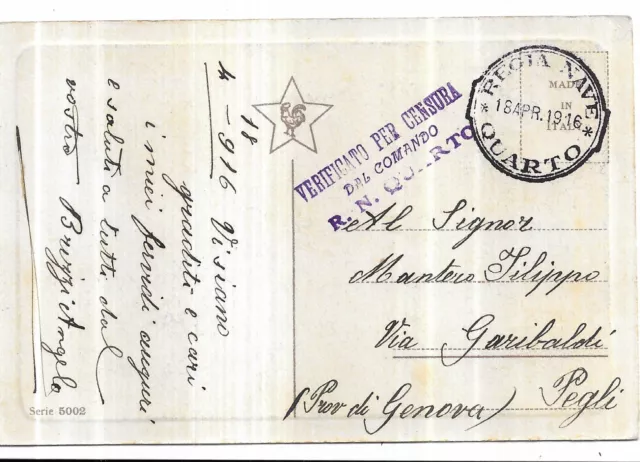 18
4-916 Visiano
graditi e cari
i miei fervidi auguri
e saluti a tutti dal
vostro Brizzi Angelo
Serie 5002
VERIFICATO PER CENSURA
DAL COMANDO
R. N. QUARTO
REGIA NAVE
*18APR.1916*
QUARTO
MADE
IN
ITALY
Al Signor
Mantero Filippo
Via Garibaldi
Pegli
(Prov di Genova)